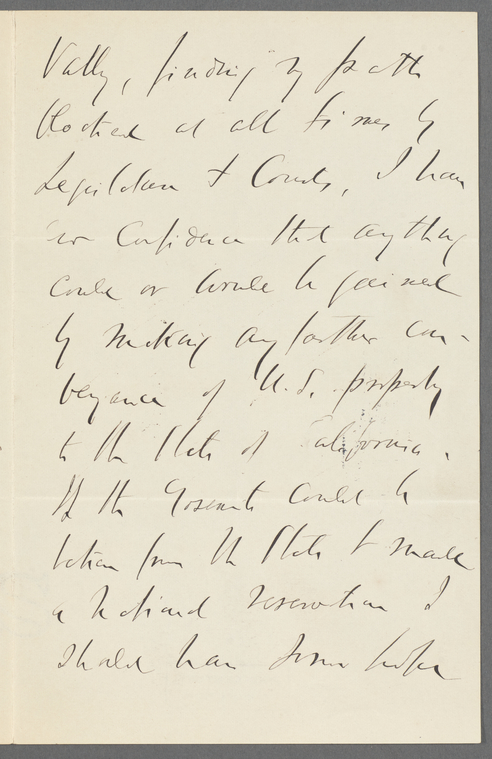 Vally, finding my path
blocked at all times by
Legislature & Courts, I have
no confidence that anything
could or would be gained
by making any farther con-
veyance of U.S. property
to the State of California.
If the Yosemite could be
taken from the State & made
a national reservation I
should have some hope